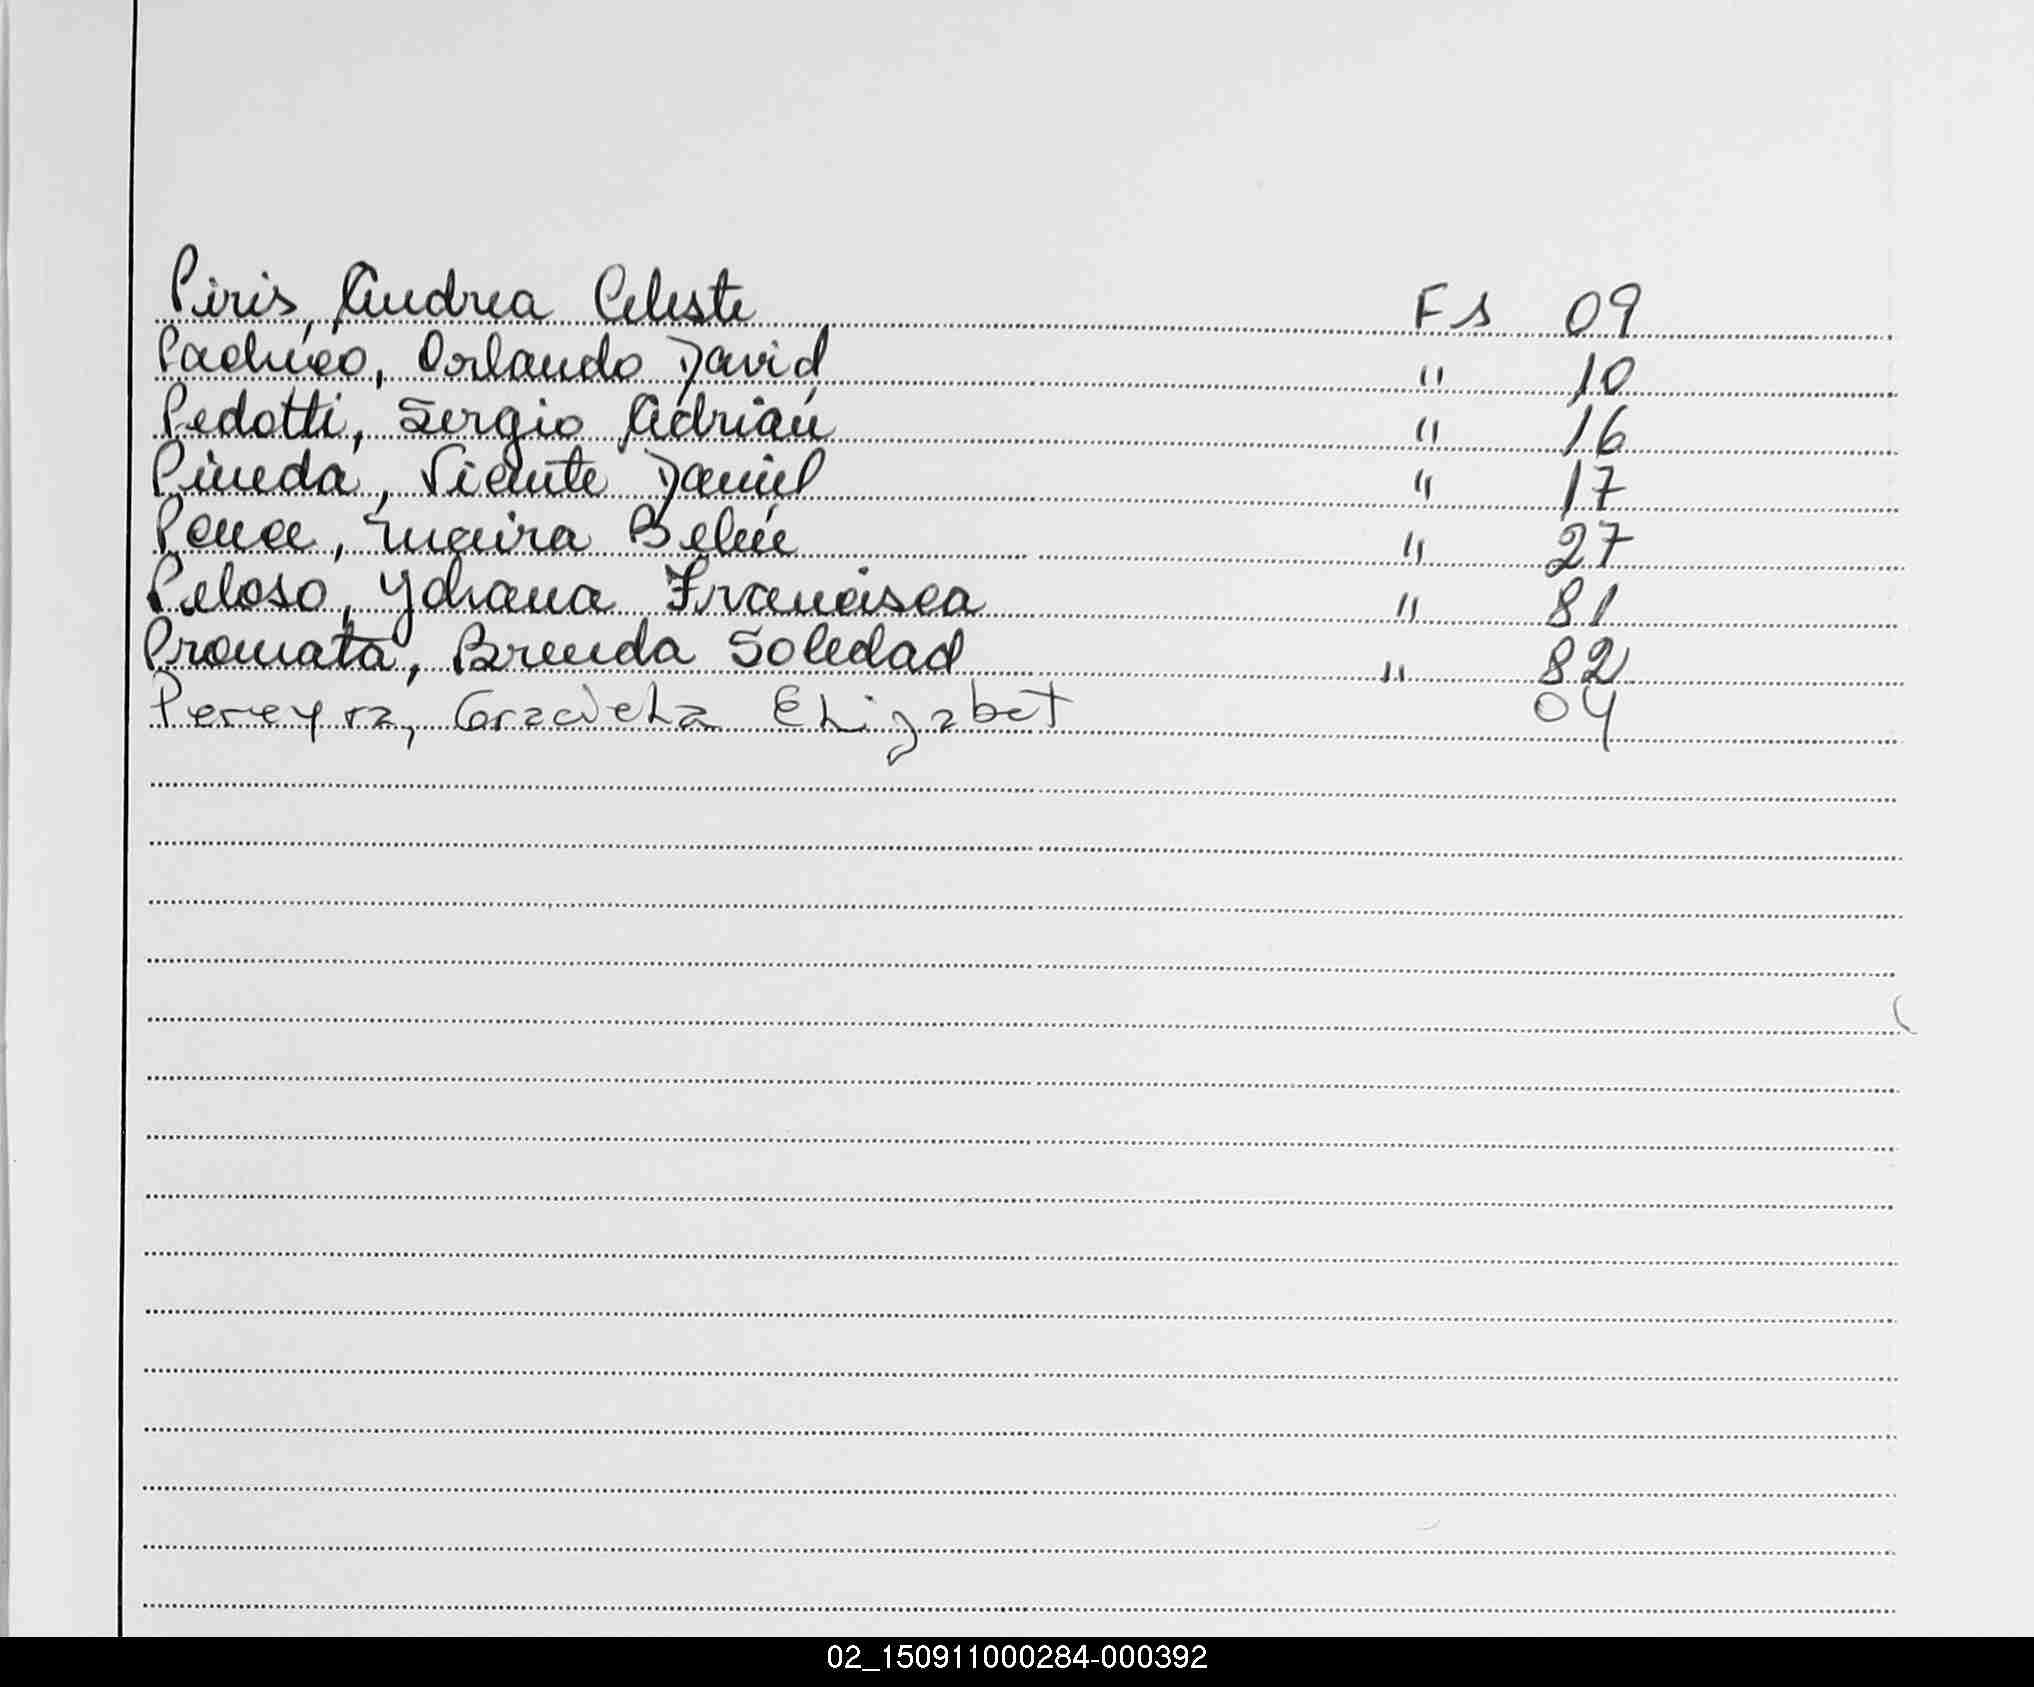 Piris, Andrea Celeste Fs 09
Pacheco, Orlando David " 10
Pedotti, Sergio Adrián " 16
Pineda, Vicente Daniel " 17
Ponce, Belén " 27
Peloso, Yohana Francisca " 81
Promata, Brenda Soledad " 82
Pereyra, Graciela Elizabet 04
02_150911000284-000392